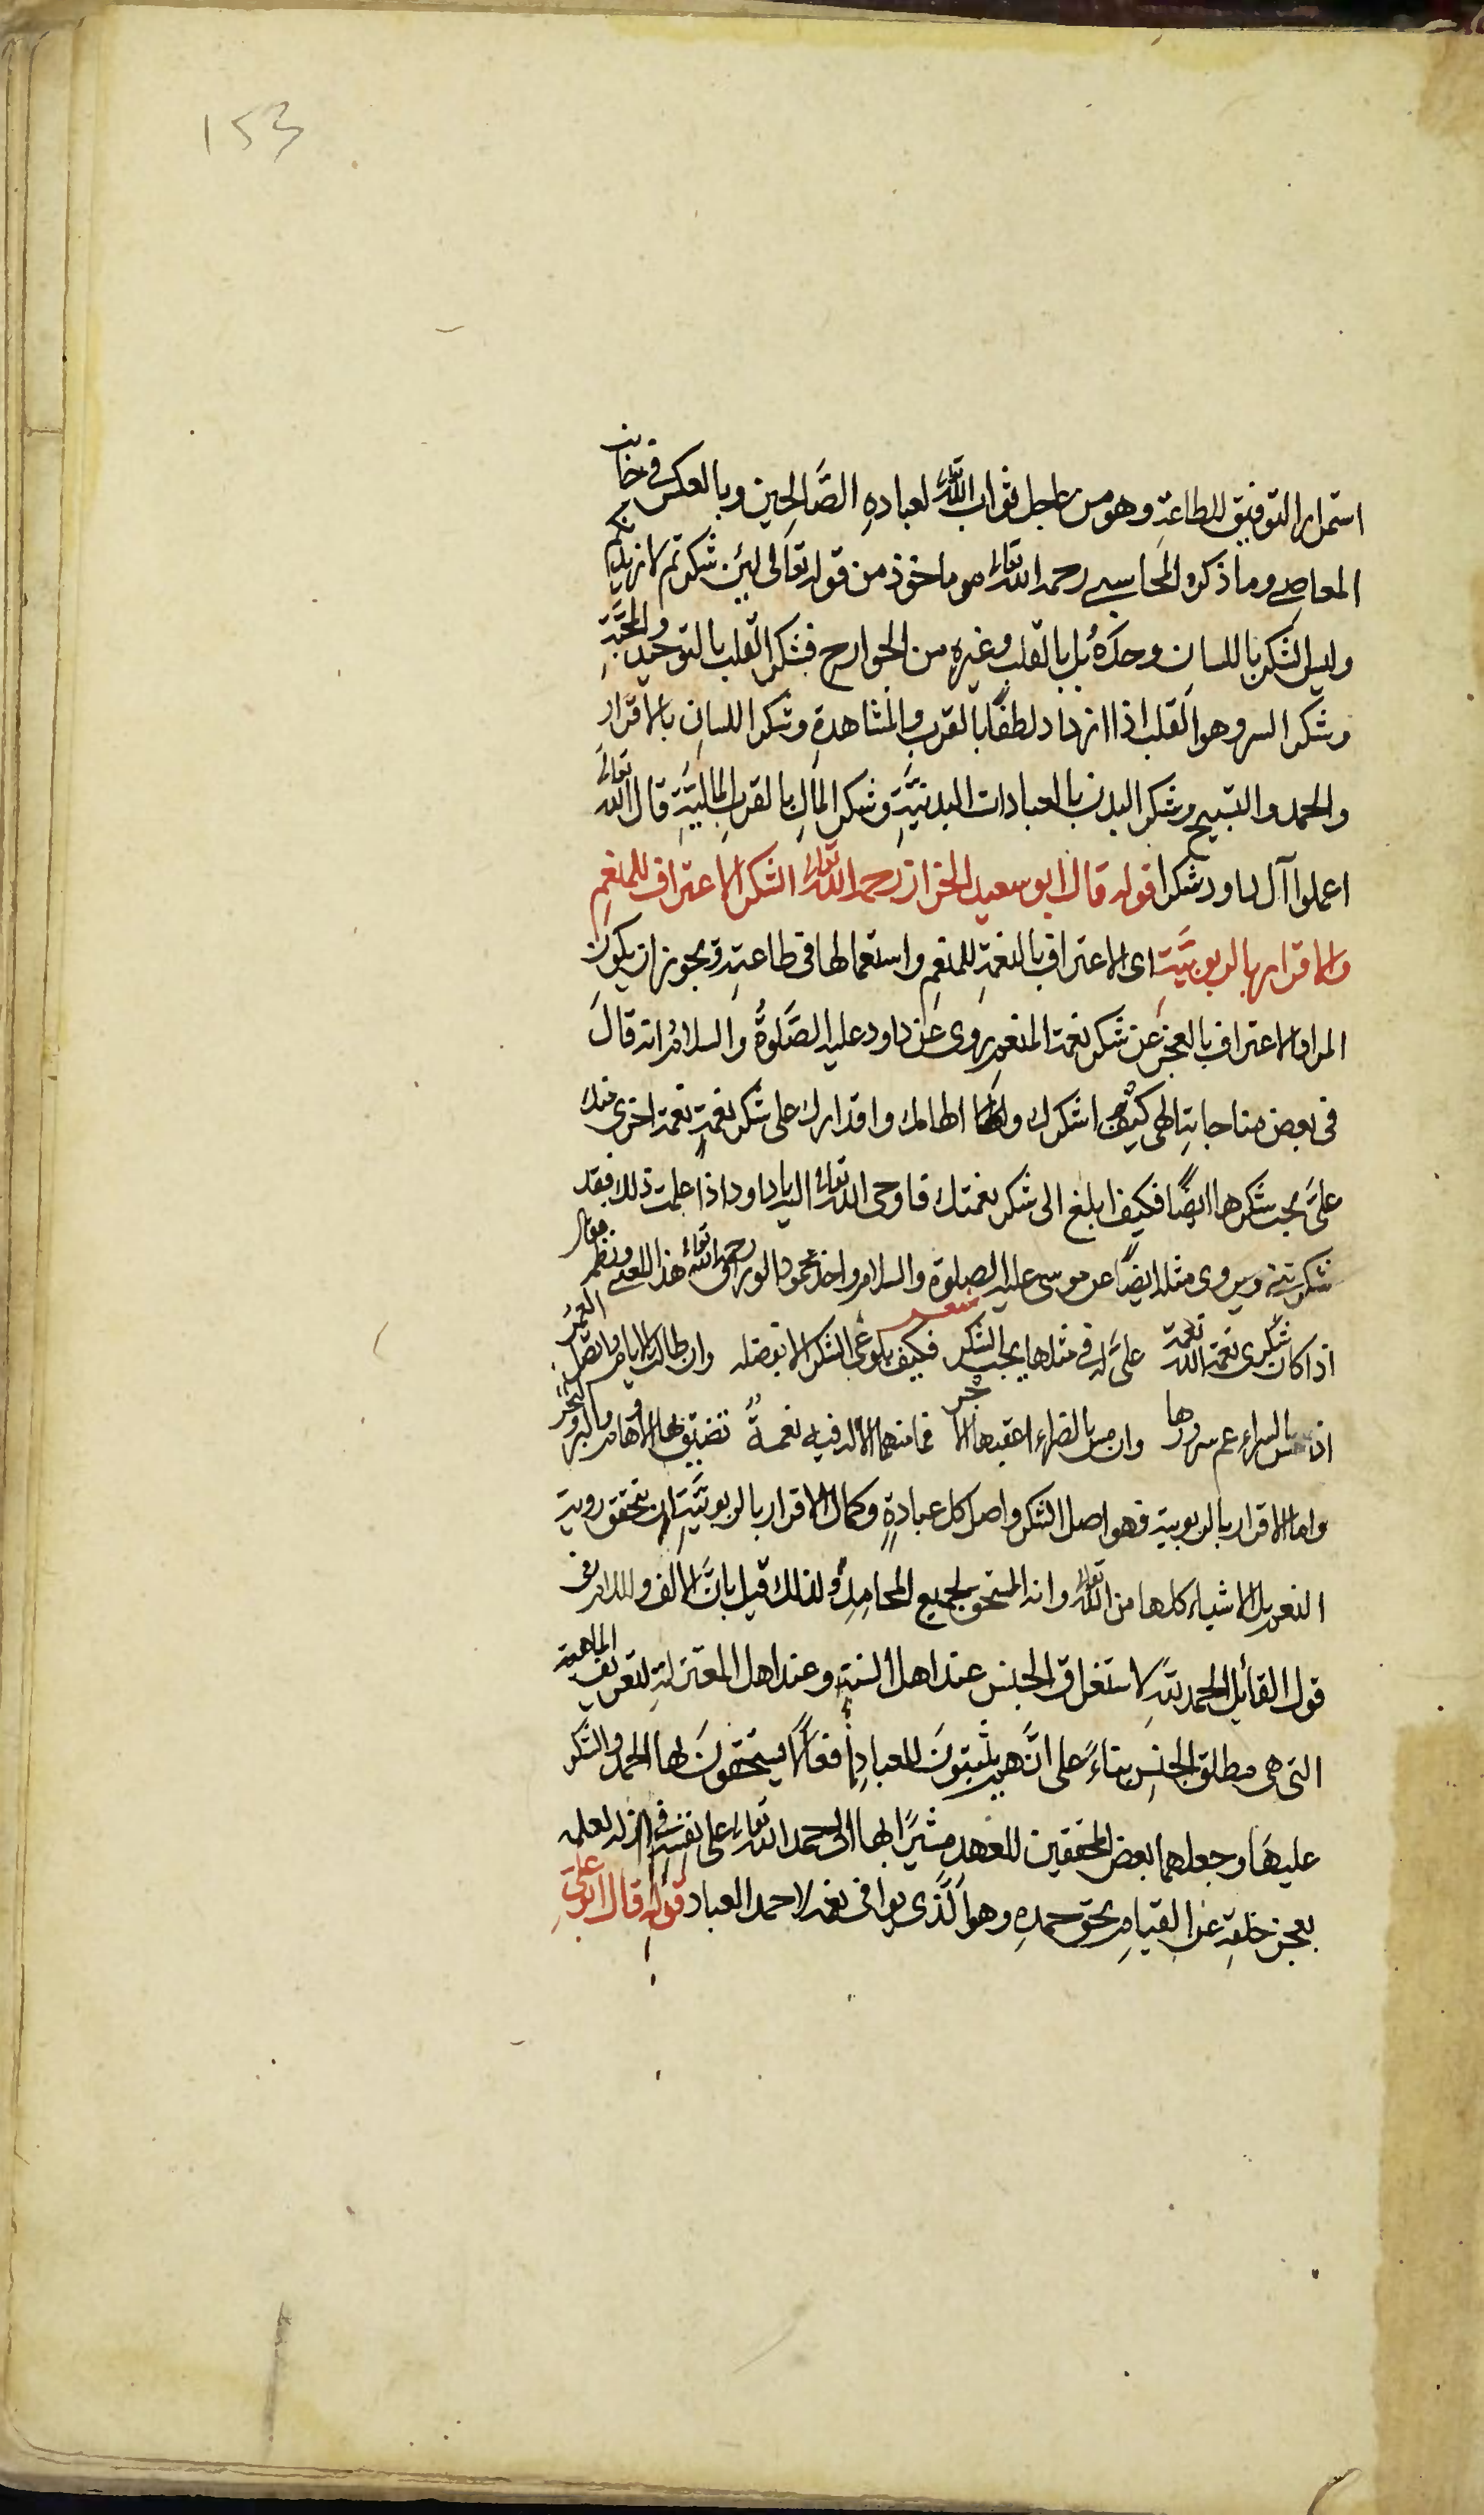 153
استمرار التوفيق للطاعة وهو من عاجل ثواب الله تعالى لعبادهِ الصَّالحِين وبالعكس في جانب
المعاصي وما ذكره المحاسبي رحمه الله تعالى هو ماخوذ من قوله تعَالى لئِن شكرتم لازيدنكم
وليس الشكر باللسانِ وحدَهُ بل بالقلب وغيرهِ من الجوارح فشكر القلب بالتوحيد والمحبَّةِ
وشكر السر وهو القلب اذا ازداد لطفًا بالقرب والمشاهدةِ وشكر اللسانِ بالاقرار
والحمد والتسبيح وشكر البدن بالعبادات البدنيَّةِ وشكر المالِ بالقرب الماليَّةِ قال الله تعالى
اعملوا آل داود شكرا قوله قال ابو سعيد الخراز رحمه الله تعالى الشكر الاعتراف للمنعمِ
والاقرار بالربوبيَّةِ اى الاعتراف بالنعمةِ للمنعِم واستعمالها فى طاعتِه ويجوز ان يكون
المراد الاعتراف بالعجز عن شكر نعمة المنعم روى عن داود عليه الصَّلوةُ والسلامُ انه قال
فى بعض مناجاتِه الهى كيف اشكرك والهامك واقدارك على شكر نعمةٍ نعمة اخرى منك
علىَّ يجب شكرها ايضًا فكيف ابلغ الى شكر نعمتك فاوحى الله تعالى اليه يا داود اذا علمت ذلك فقد
شكرتنى ويروى مثله ايضًا عن موسى عليه الصلوة والسلام واخذ محمود الوراق رحمه الله تعالى هذا المعنى ونظمه فقال
شعر
اذا كان شكرى نعمة الله نعمة علىَّ له في مثلها يجب الشكر فكيف بلوغى الشكر الا بفضله وان طالت الايام واتصل العمر
اذا مس بالسراء عم سرورها وان مس بالضراء اعقبها الاجر فما منهما الا له فيه نعمةٌ تضيق بها الاوهام والبر والبحر
واما الاقرار بالربوبية فهو اصل الشكر واصل كل عبادةٍ وكمال الاقرار بالربوبيَّةِ ان يتحقق روية
النعم بل الاشياء كلها من الله تعالى وانه المستحق لجميع المحامِدِ ولذلك قيل بانَّ الالف واللام فى
قول القائِل الحمد للهِ لاستغراق الجنس عند اهل السنةِ وعند اهل المعتزلةِ لتعريف الماهية
التى هى مطلق الجنسِ بناءً على انَّهم يثبتونَ للعبادِ افعالًا يستحقونَ لها الحمد والشكر
عليهَا وجعلهما بعض المحققين للعهدِ مشيرًا بها الى حمد الله تعالى على نفسِه فى ازله لعلمه
بعجز خلقه عن القيام بحق حمدِهِ وهو الَّذى يوافى نعمه لا حمد العباد قوله قال ابو علىٍ